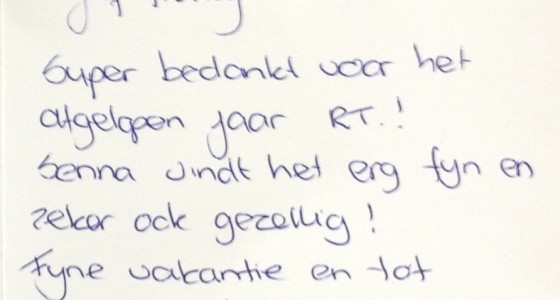 Super bedankt voor het
afgelopen jaar RT.!
Senna vindt het erg fyn en
zeker ook gezellig!
Fyne vakantie en tot